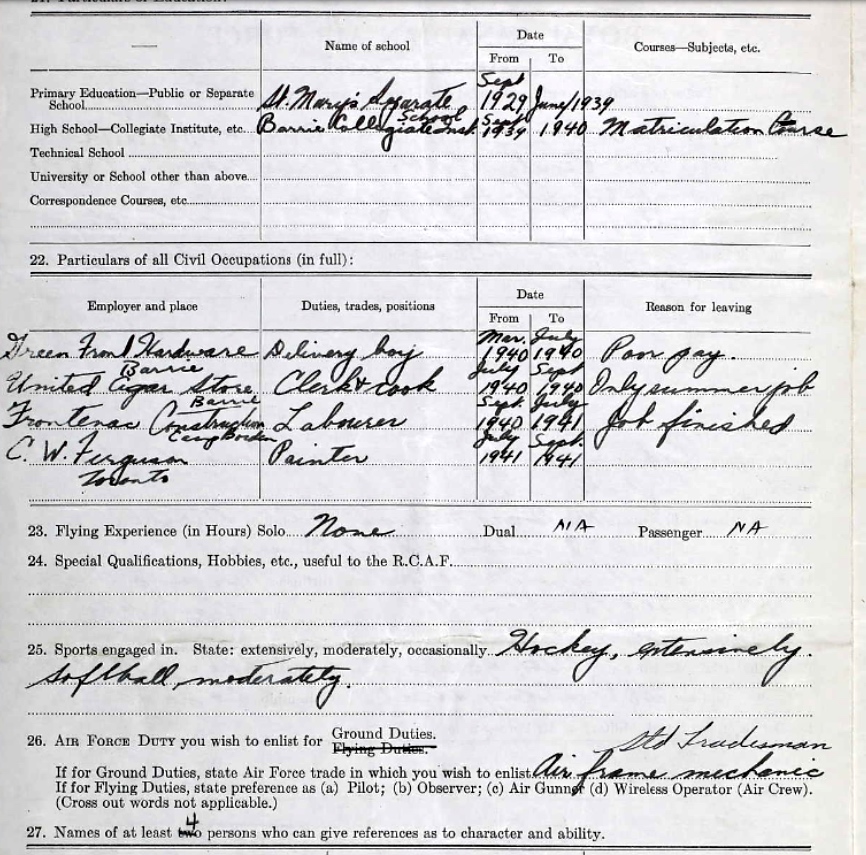 Name of school
Date
From To
Courses—Subjects, etc.
Primary Education—Public or Separate School St. Mary's Separate School Sept 1929 June/1939
High School—Collegiate Institute, etc. Barrie Collegiate Inst. Sept 1939 1940 Matriculation Course
Technical School
University or School other than above
Correspondence Courses, etc.
22. Particulars of all Civil Occupations (in full):
Employer and place Duties, trades, positions Date Reason for leaving
From To
Green Front Hardware Barrie Delivery boy Mar. 1940 July 1940 Poor pay.
United Cigar Store Barrie Clerk & cook July 1940 Sept 1940 Only summer job
Frontenac Construction Camp Borden Labourer Sept. 1940 July 1941 Job finished
C. W. Ferguson Toronto Painter July 1941 Sept. 1941
23. Flying Experience (in Hours) Solo None Dual N/A Passenger NA
24. Special Qualifications, Hobbies, etc., useful to the R.C.A.F.
25. Sports engaged in. State: extensively, moderately, occasionally. Hockey, extensively.
Softball, moderately.
26. AIR FORCE DUTY you wish to enlist for Ground Duties.
Flying Duties.
Std Tradesman
If for Ground Duties, state Air Force trade in which you wish to enlist Air frame mechanic
If for Flying Duties, state preference as (a) Pilot; (b) Observer; (c) Air Gunner (d) Wireless Operator (Air Crew).
(Cross out words not applicable.)
27. Names of at least two 4 persons who can give references as to character and ability.